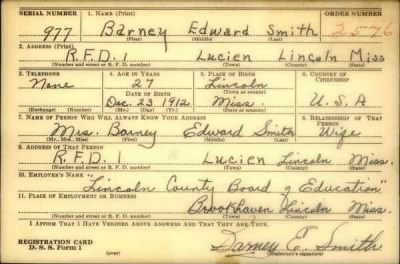 SERIAL NUMBER 1. NAME (Print) ORDER NUMBER
977 Barney Edward Smith 2526
(First) (Middle) (Last)
2. ADDRESS (Print)
R.F.D. 1 Lucien Lincoln Miss
(Number and street or R. F. D. number) (Town) (County) (State)
3. TELEPHONE 4. AGE IN YEARS 5. PLACE OF BIRTH 6. COUNTRY OF CITIZENSHIP
None 27 Lincoln
DATE OF BIRTH (Town or county)
Dec. 23 1912 Miss. U.S.A
(Exchange) (Number) (Mo.) (Day) (Yr.) (State or country)
7. NAME OF PERSON WHO WILL ALWAYS KNOW YOUR ADDRESS 8. RELATIONSHIP OF THAT PERSON
Mrs. Barney Edward Smith Wife
(Mr., Mrs., Miss) (First) (Middle) (Last)
9. ADDRESS OF THAT PERSON
R.F.D. 1 Lucien Lincoln Miss.
(Number and street or R. F. D. number) (Town) (County) (State)
10. EMPLOYER'S NAME
"Lincoln County Board of Education"
11. PLACE OF EMPLOYMENT OR BUSINESS
Brookhaven Lincoln Miss.
(Number and street or R. F. D. number) (Town) (County) (State)
I AFFIRM THAT I HAVE VERIFIED ABOVE ANSWERS AND THAT THEY ARE TRUE.
REGISTRATION CARD
D. S. S. Form 1 (over) Barney E. Smith
(Registrant's signature)